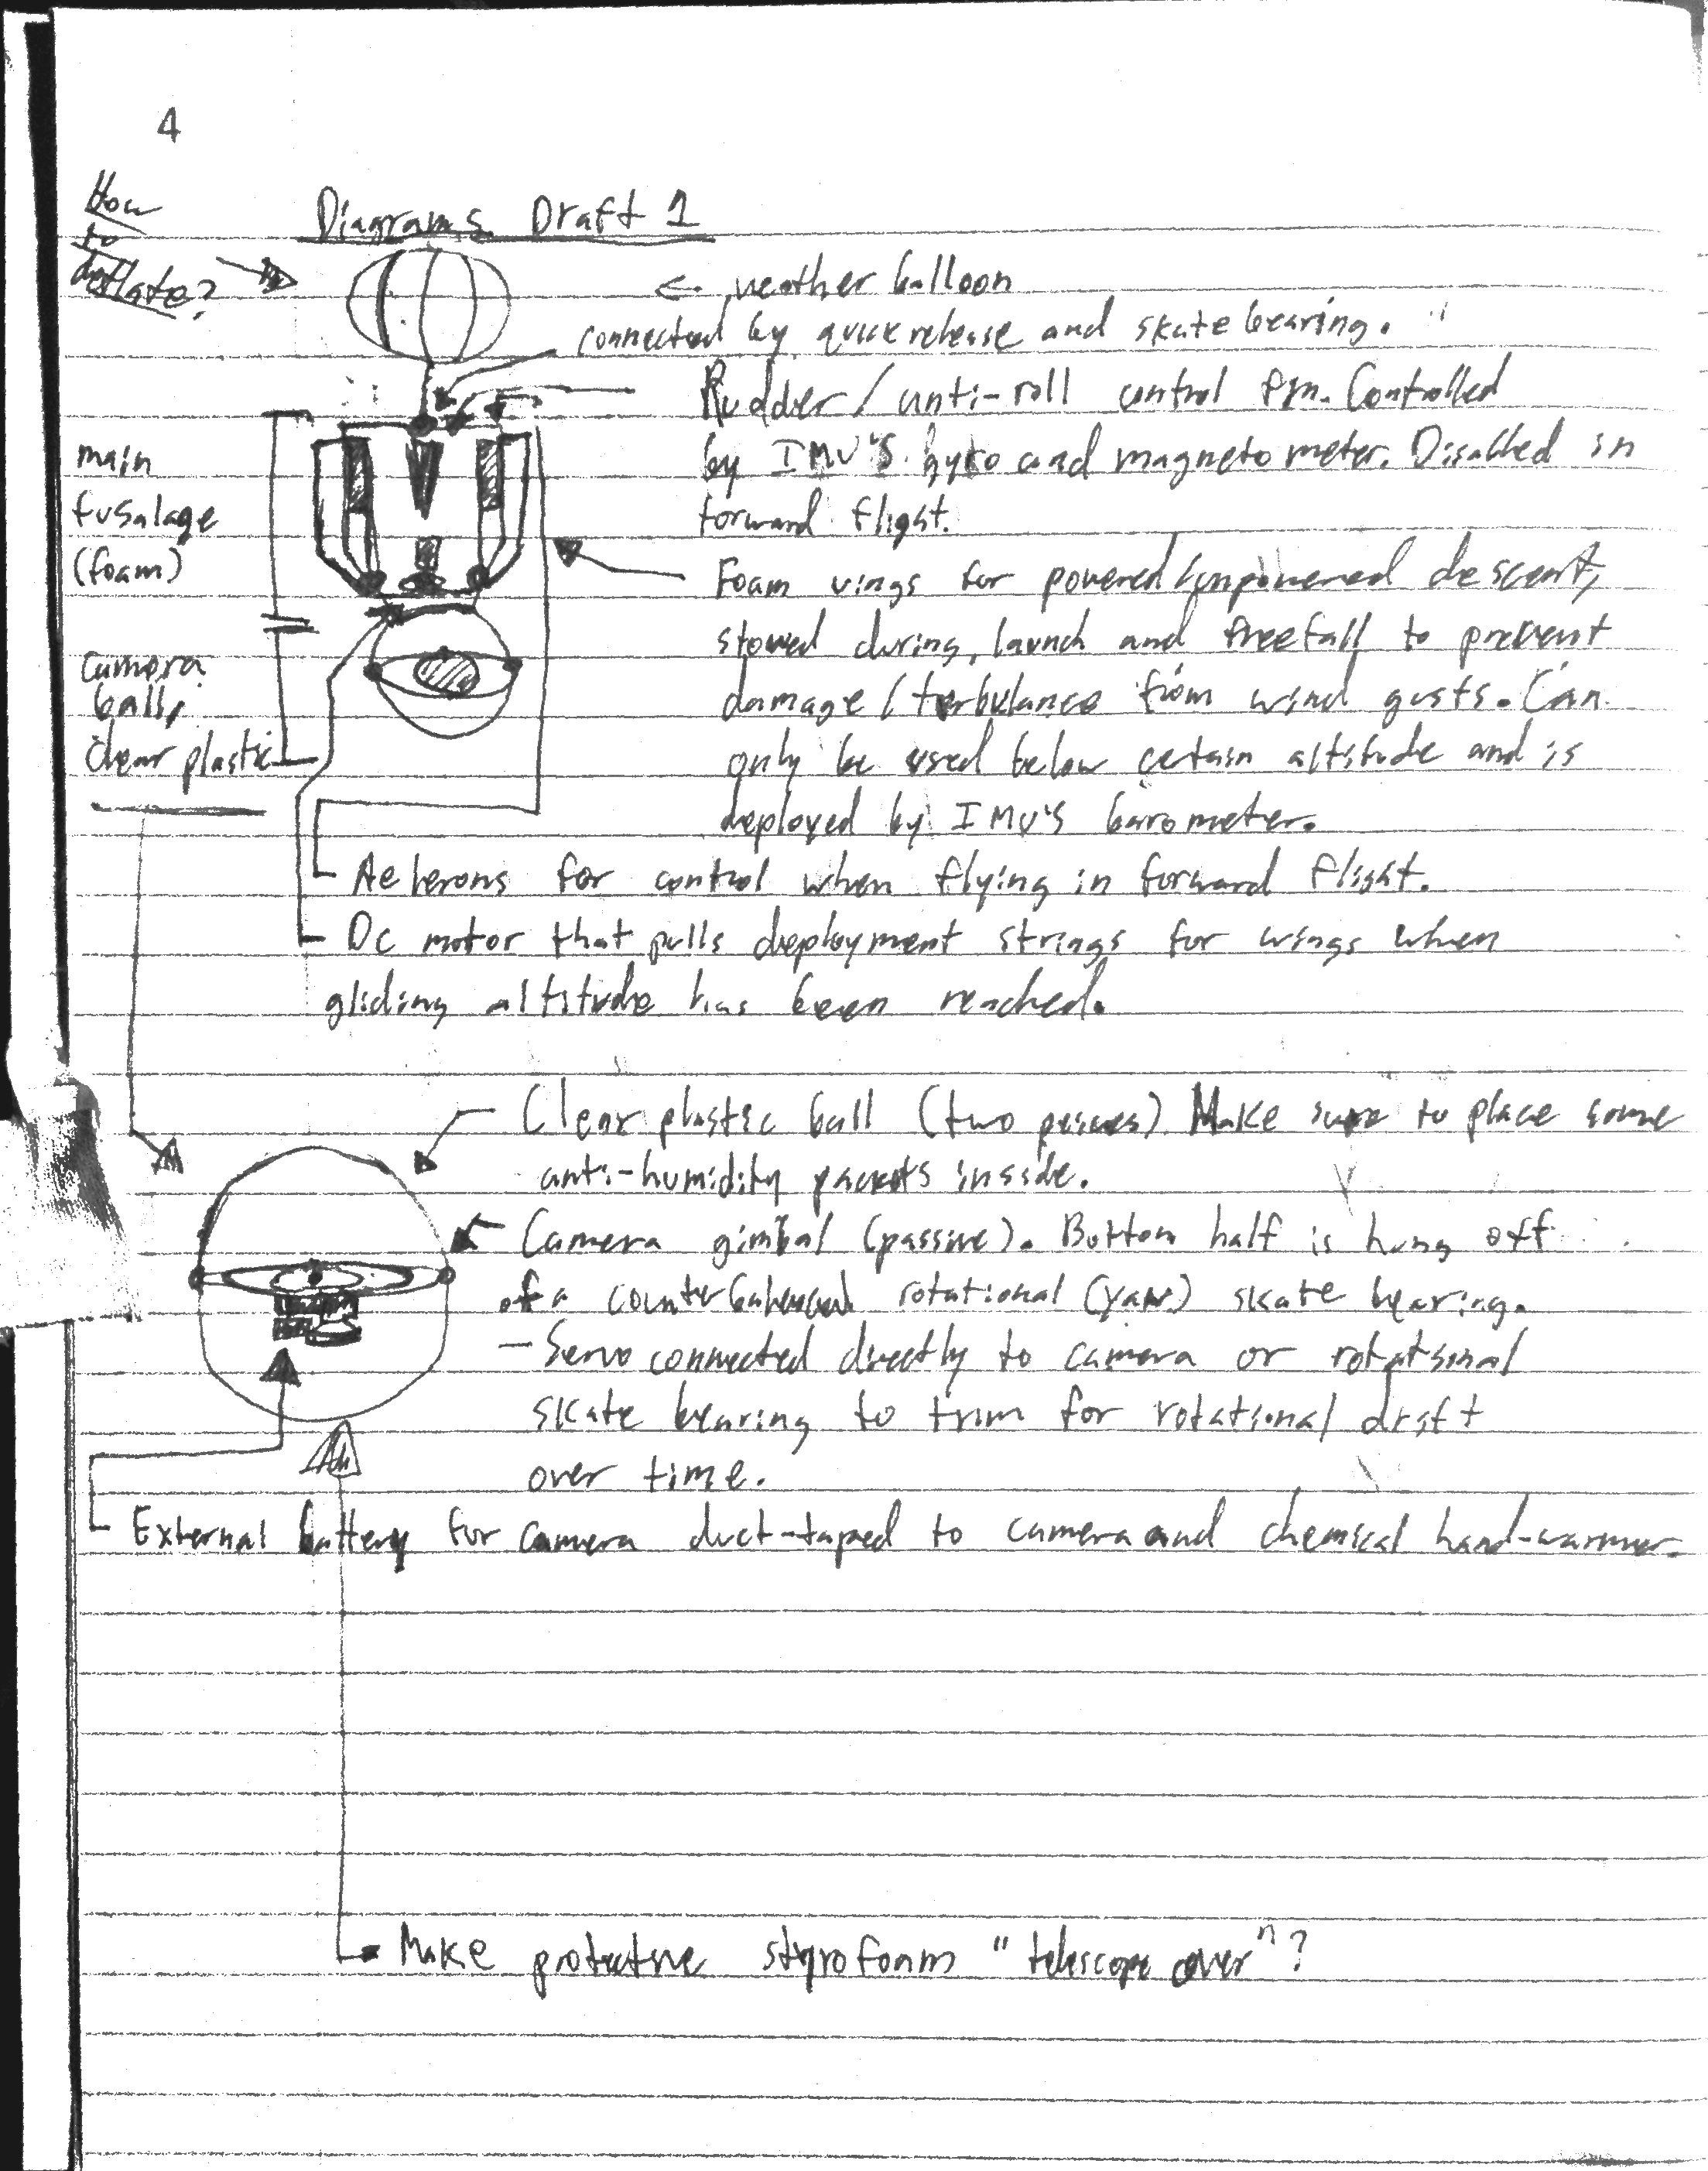 4
How
to
deflate?
Diagrams Draft 1
<- weather balloon
connected by quick release and skate bearing.
Rudder/anti-roll control fin. Controlled
by IMU's gyro and magnetometer. Disabled in
forward flight.
main
fusalage
(foam)
Foam wings for powered/unpowered descent,
stowed during launch and freefall to prevent
damage/terbulance from wind gusts. Can
only be used below certain altitude and is
deployed by IMU's barometer.
camera
ball,
clear plastic
Aelerons for control when flying in forward flight.
Dc motor that pulls deployment strings for wings when
gliding altitude has been reached.
Clear plastic ball (two peices) Make sure to place some
anti-humidity packets inside.
Camera gimbal (passive). Bottom half is hung off
of a counterbalanced rotational (yaw) skate bearing.
- Servo connected directly to camera or rotational
skate bearing to trim for rotational drift
over time.
External battery for camera duct-taped to camera and chemical hand-warmer.
Make protective styrofoam "telescope cover"?